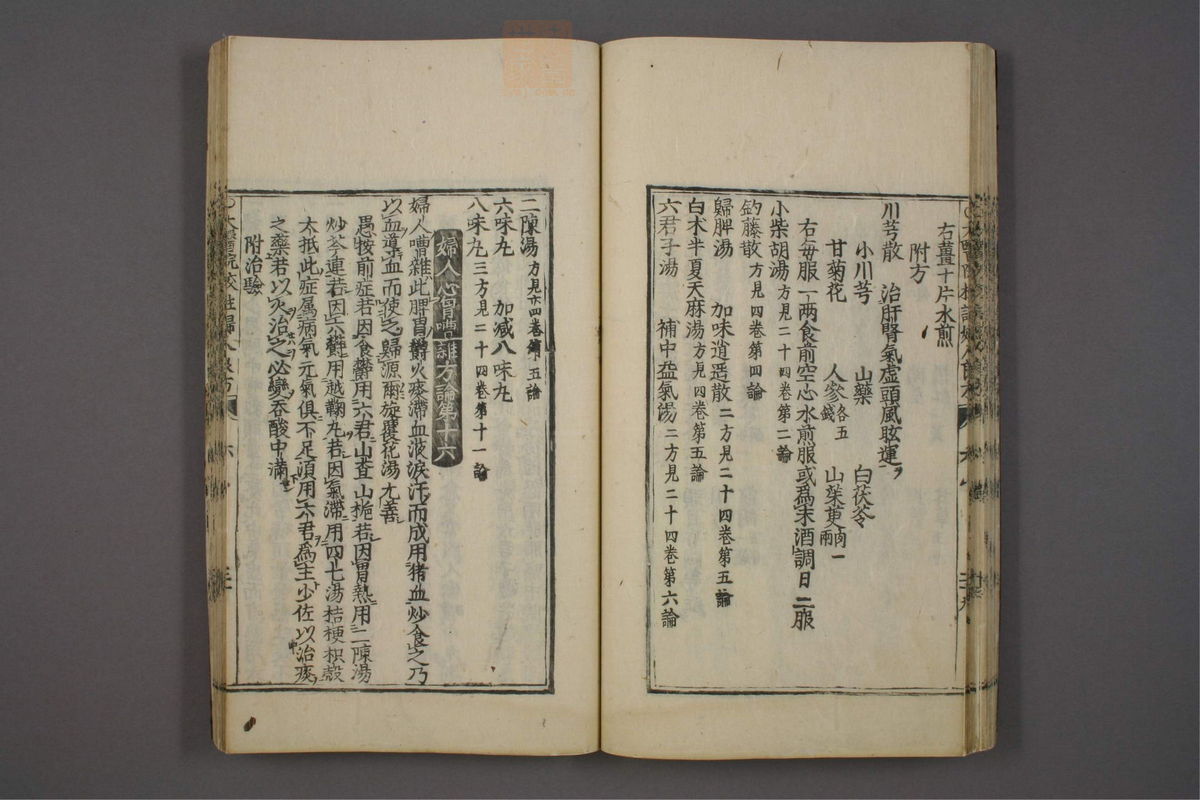 右薑十片水煎
附方
川芎散 治肝腎氣虛頭風眩運
小川芎 山藥 白茯苓
甘菊花 人參各五錢 山茱萸肉一兩
右每服一兩食前空心水煎服或爲末酒調日二服
小柴胡湯方見二十四卷第二論
釣藤散方見四卷第四論
歸脾湯 加味逍遙散二方見二十四卷第五論
白朮半夏天麻湯方見四卷第五論
六君子湯 補中益氣湯二方見二十四卷第六論
二陳湯方見六四卷第五論
六味丸 加減八味丸
八味丸三方見二十四卷第十一論
婦人心胃嘈雜方論第十六
婦人嘈雜此脾胃鬱火痰滯血液淚汗而成用猪血炒食之乃
以血導血而使之歸源爾旋覆花湯尤善
愚按前症若因食鬱用六君山查山梔若因胃熱用二陳湯
炒芩連若因六鬱用越鞠丸若因氣滯用四七湯桔梗枳殼
大抵此症屬病氣元氣俱不足須用六君爲主少佐以治痰
之藥若以火治之必變吞酸中滿
附治驗